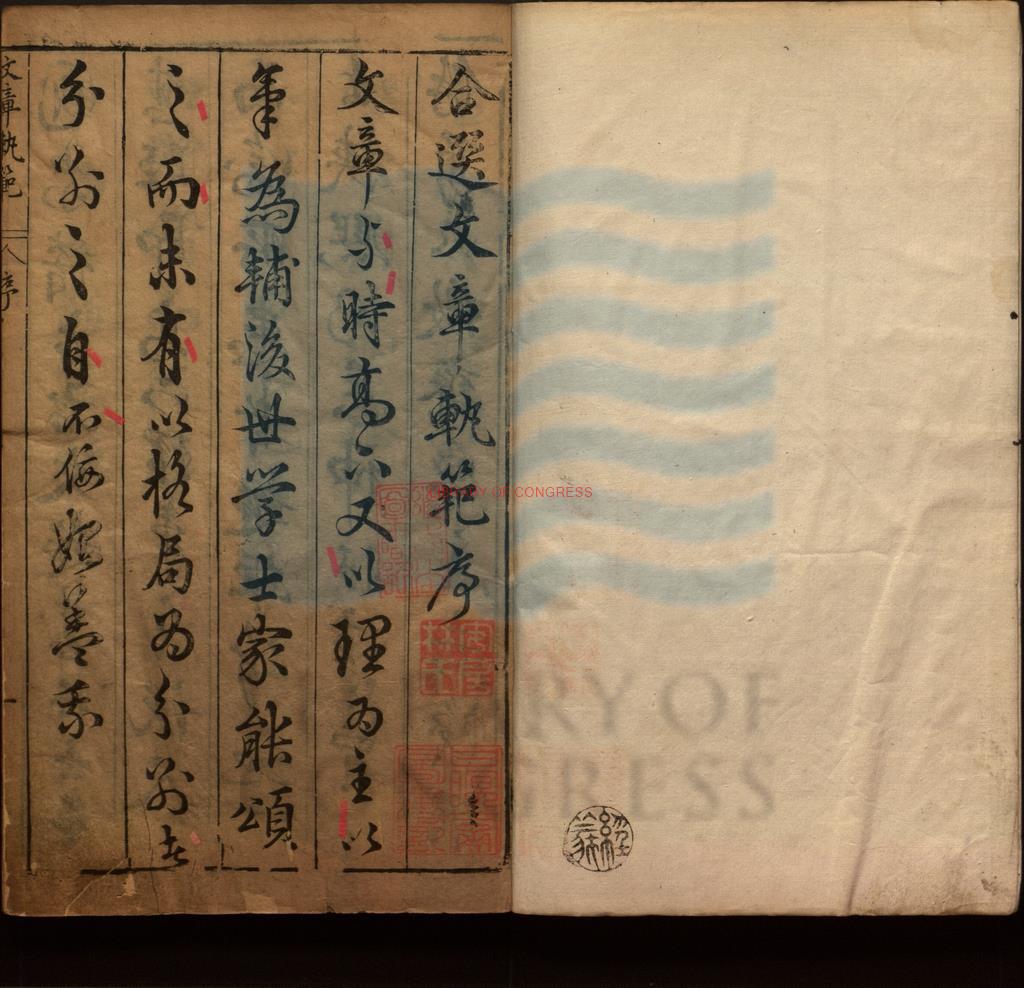 合選文章軌範序
文章与時高下又以理為主以
氣為輔後世学士家能頌
之而未有以格局为分别者
分别之自不佞始蓋我
文章軌範
序
LIBRARY OF CONGRESS
RY OF
GRESS